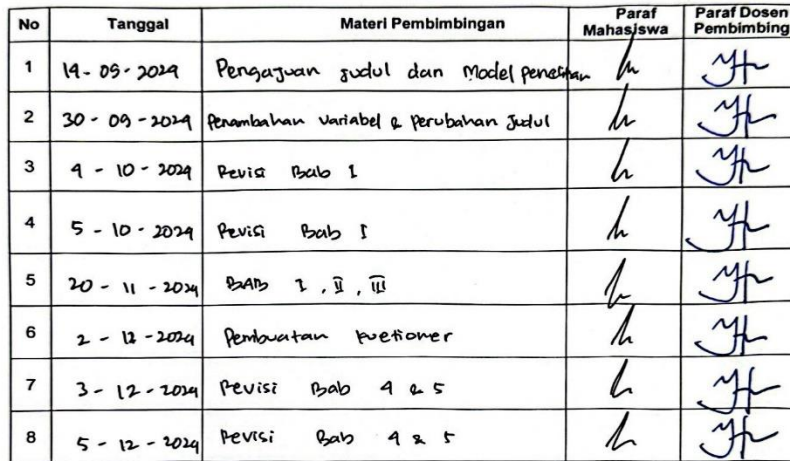 No Tanggal Materi Pembimbingan Paraf Mahasiswa Paraf Dosen Pembimbing
1 19-09-2024 Pengajuan judul dan Model penelitian
2 30-09-2024 Penambahan variabel & Perubahan Judul
3 4-10-2024 Revisi Bab I
4 5-10-2024 Revisi Bab I
5 20-11-2024 BAB I, II, III
6 2-12-2024 Pembuatan kuetioner
7 3-12-2024 Revisi Bab 4 & 5
8 5-12-2024 Revisi Bab 4 & 5